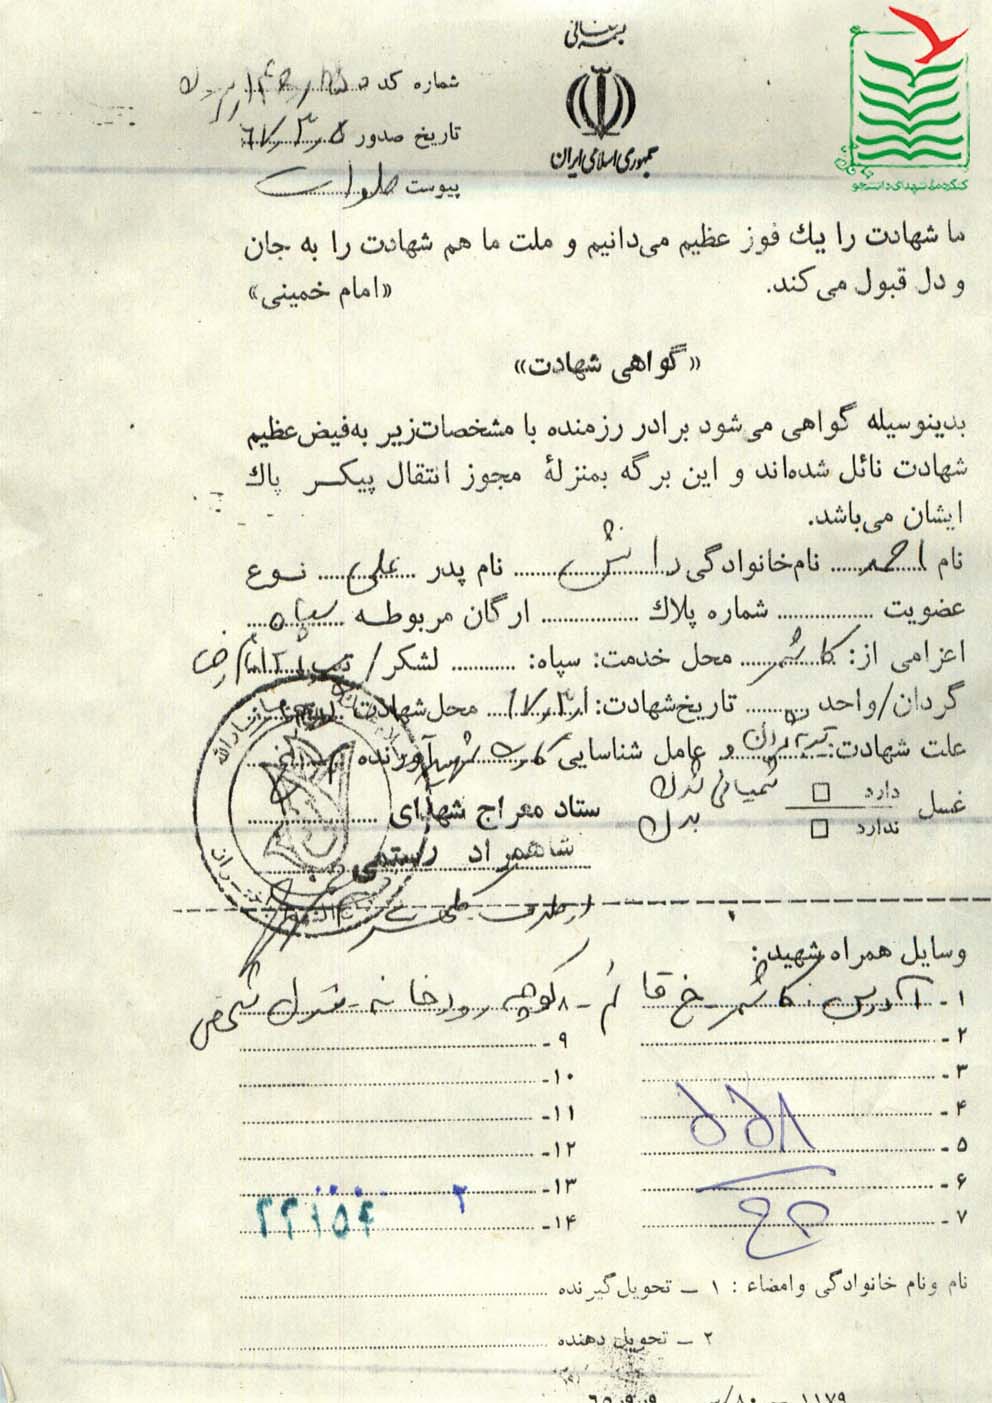 بسمه تعالی
جمهوری اسلامی ایران
کنگره ملی شهدای دانشجو
شماره کد
تاریخ صدور ۶۷٫۳٫۵
پیوست صلوات
ما شهادت را یك فوز عظیم می‌دانیم و ملت ما هم شهادت را به جان
و دل قبول می‌کند. «امام خمینی»
«گواهی شهادت»
بدینوسیله گواهی می‌شود برادر رزمنده با مشخصات زیر به فیض عظیم
شهادت نائل شده‌اند و این برگه بمنزلهٔ مجوز انتقال پیکر پاك
ایشان می‌باشد.
نام احمد نام‌خانوادگی دانش نام پدر علی نوع
عضویت ........ شماره پلاك ........ ارگان مربوطه سپاه
اعزامی از: کاشمر محل خدمت: سپاه: ........ لشکر/ تیپ ۲۱ امام رضا
گردان/واحد ........ تاریخ شهادت: ۶۷٫۳٫۱ محل شهادت
علت شهادت: عامل شناسایی کارت شهید آورنده
غسل دارد □
ندارد □
شیمیائی
ستاد معراج شهدای ........
شاهمراد رستمی
از طرف
وسایل همراه شهید:
۱ـ آدرس: کاشمر ـ خ قائم ـ ۸ کوچه رودخانه ـ منزل شخصی
۲ـ ۹ـ
۳ـ ۱۰ـ
۴ـ ۱۱ـ
۵ـ ۱۲ـ
۶ـ ۱۳ـ
۷ـ ۱۴ـ
۲۲۱۵۴
نام ونام خانوادگی وامضاء : ۱ ـ تحویل گیرنده
۲ ـ تحویل دهنده